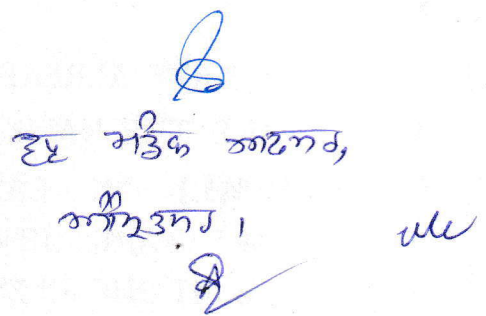 ਵਣ ਮੰਡਲ ਅਫਸਰ,
ਅੰਮ੍ਰਿਤਸਰ।